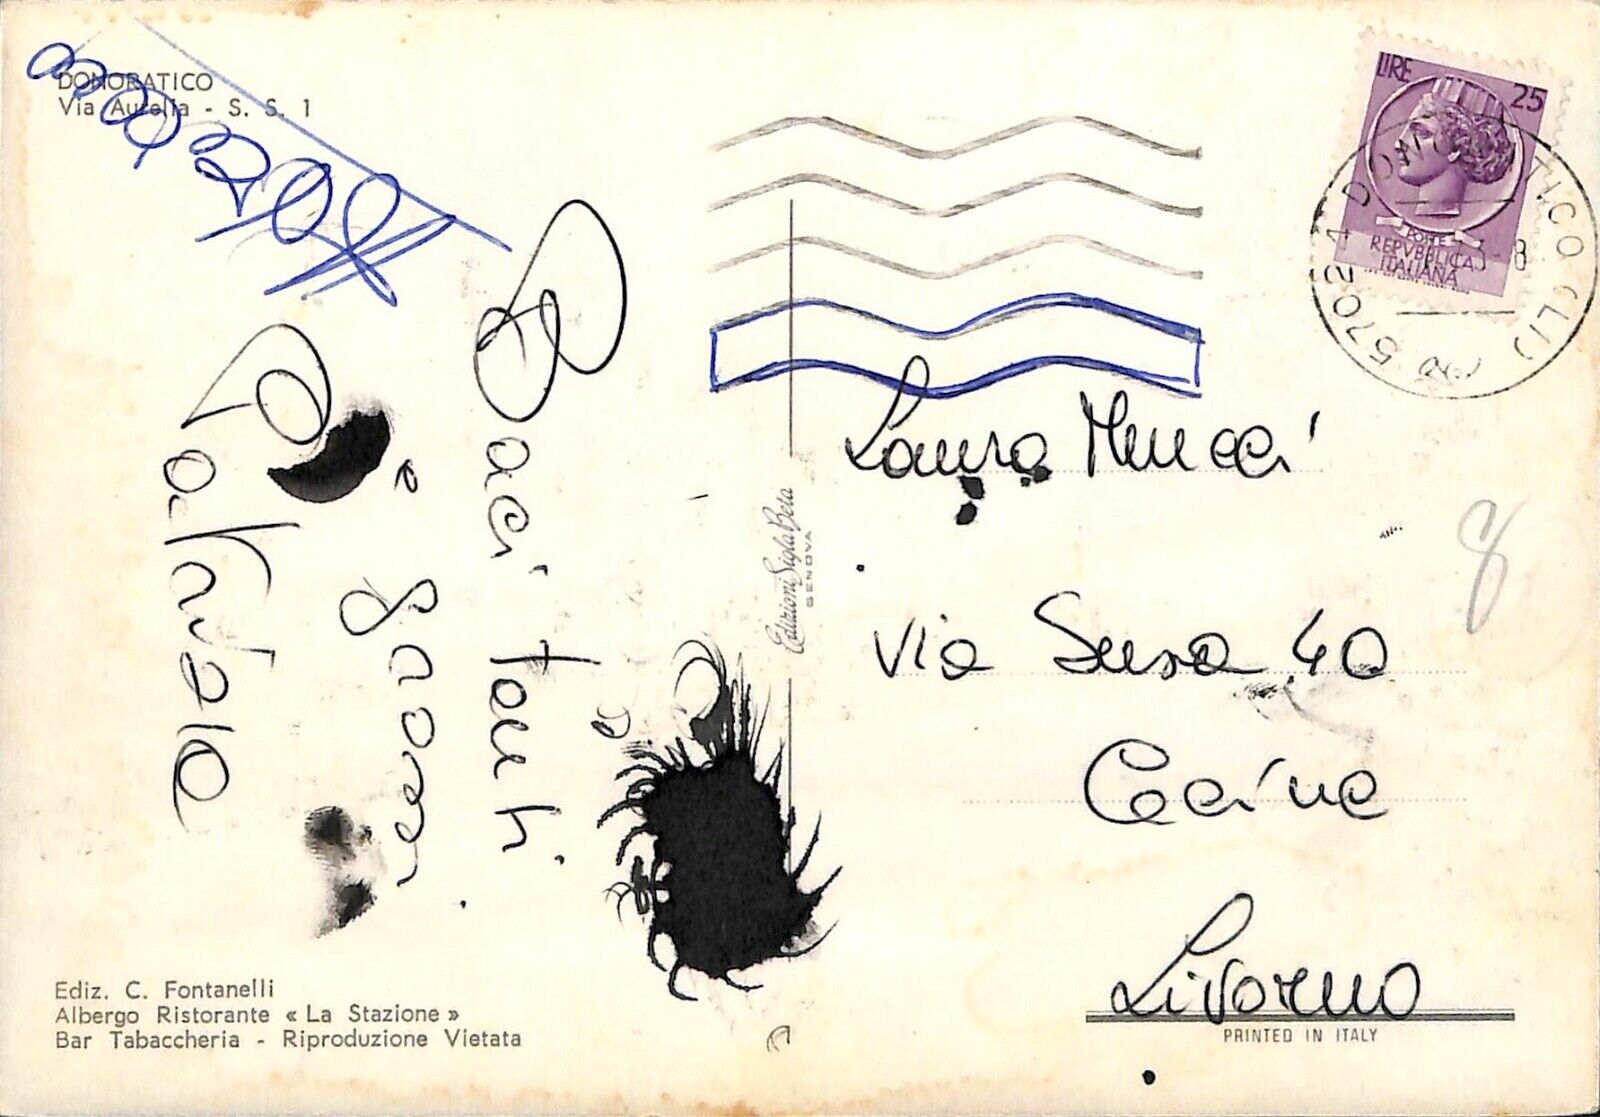 DONORATICO
Via Aurelia - S. S. 1
Baci tanti
e
Patrizia
LIRE 25
POSTE
REPVBBLICA
ITALIANA
57024 DONORATICO (LI)
Laura Mucci
Via Susa 40
Cecina
Livorno
8
Edizioni Sigla Beta
GENOVA
Ediz. C. Fontanelli
Albergo Ristorante « La Stazione »
Bar Tabaccheria - Riproduzione Vietata
PRINTED IN ITALY